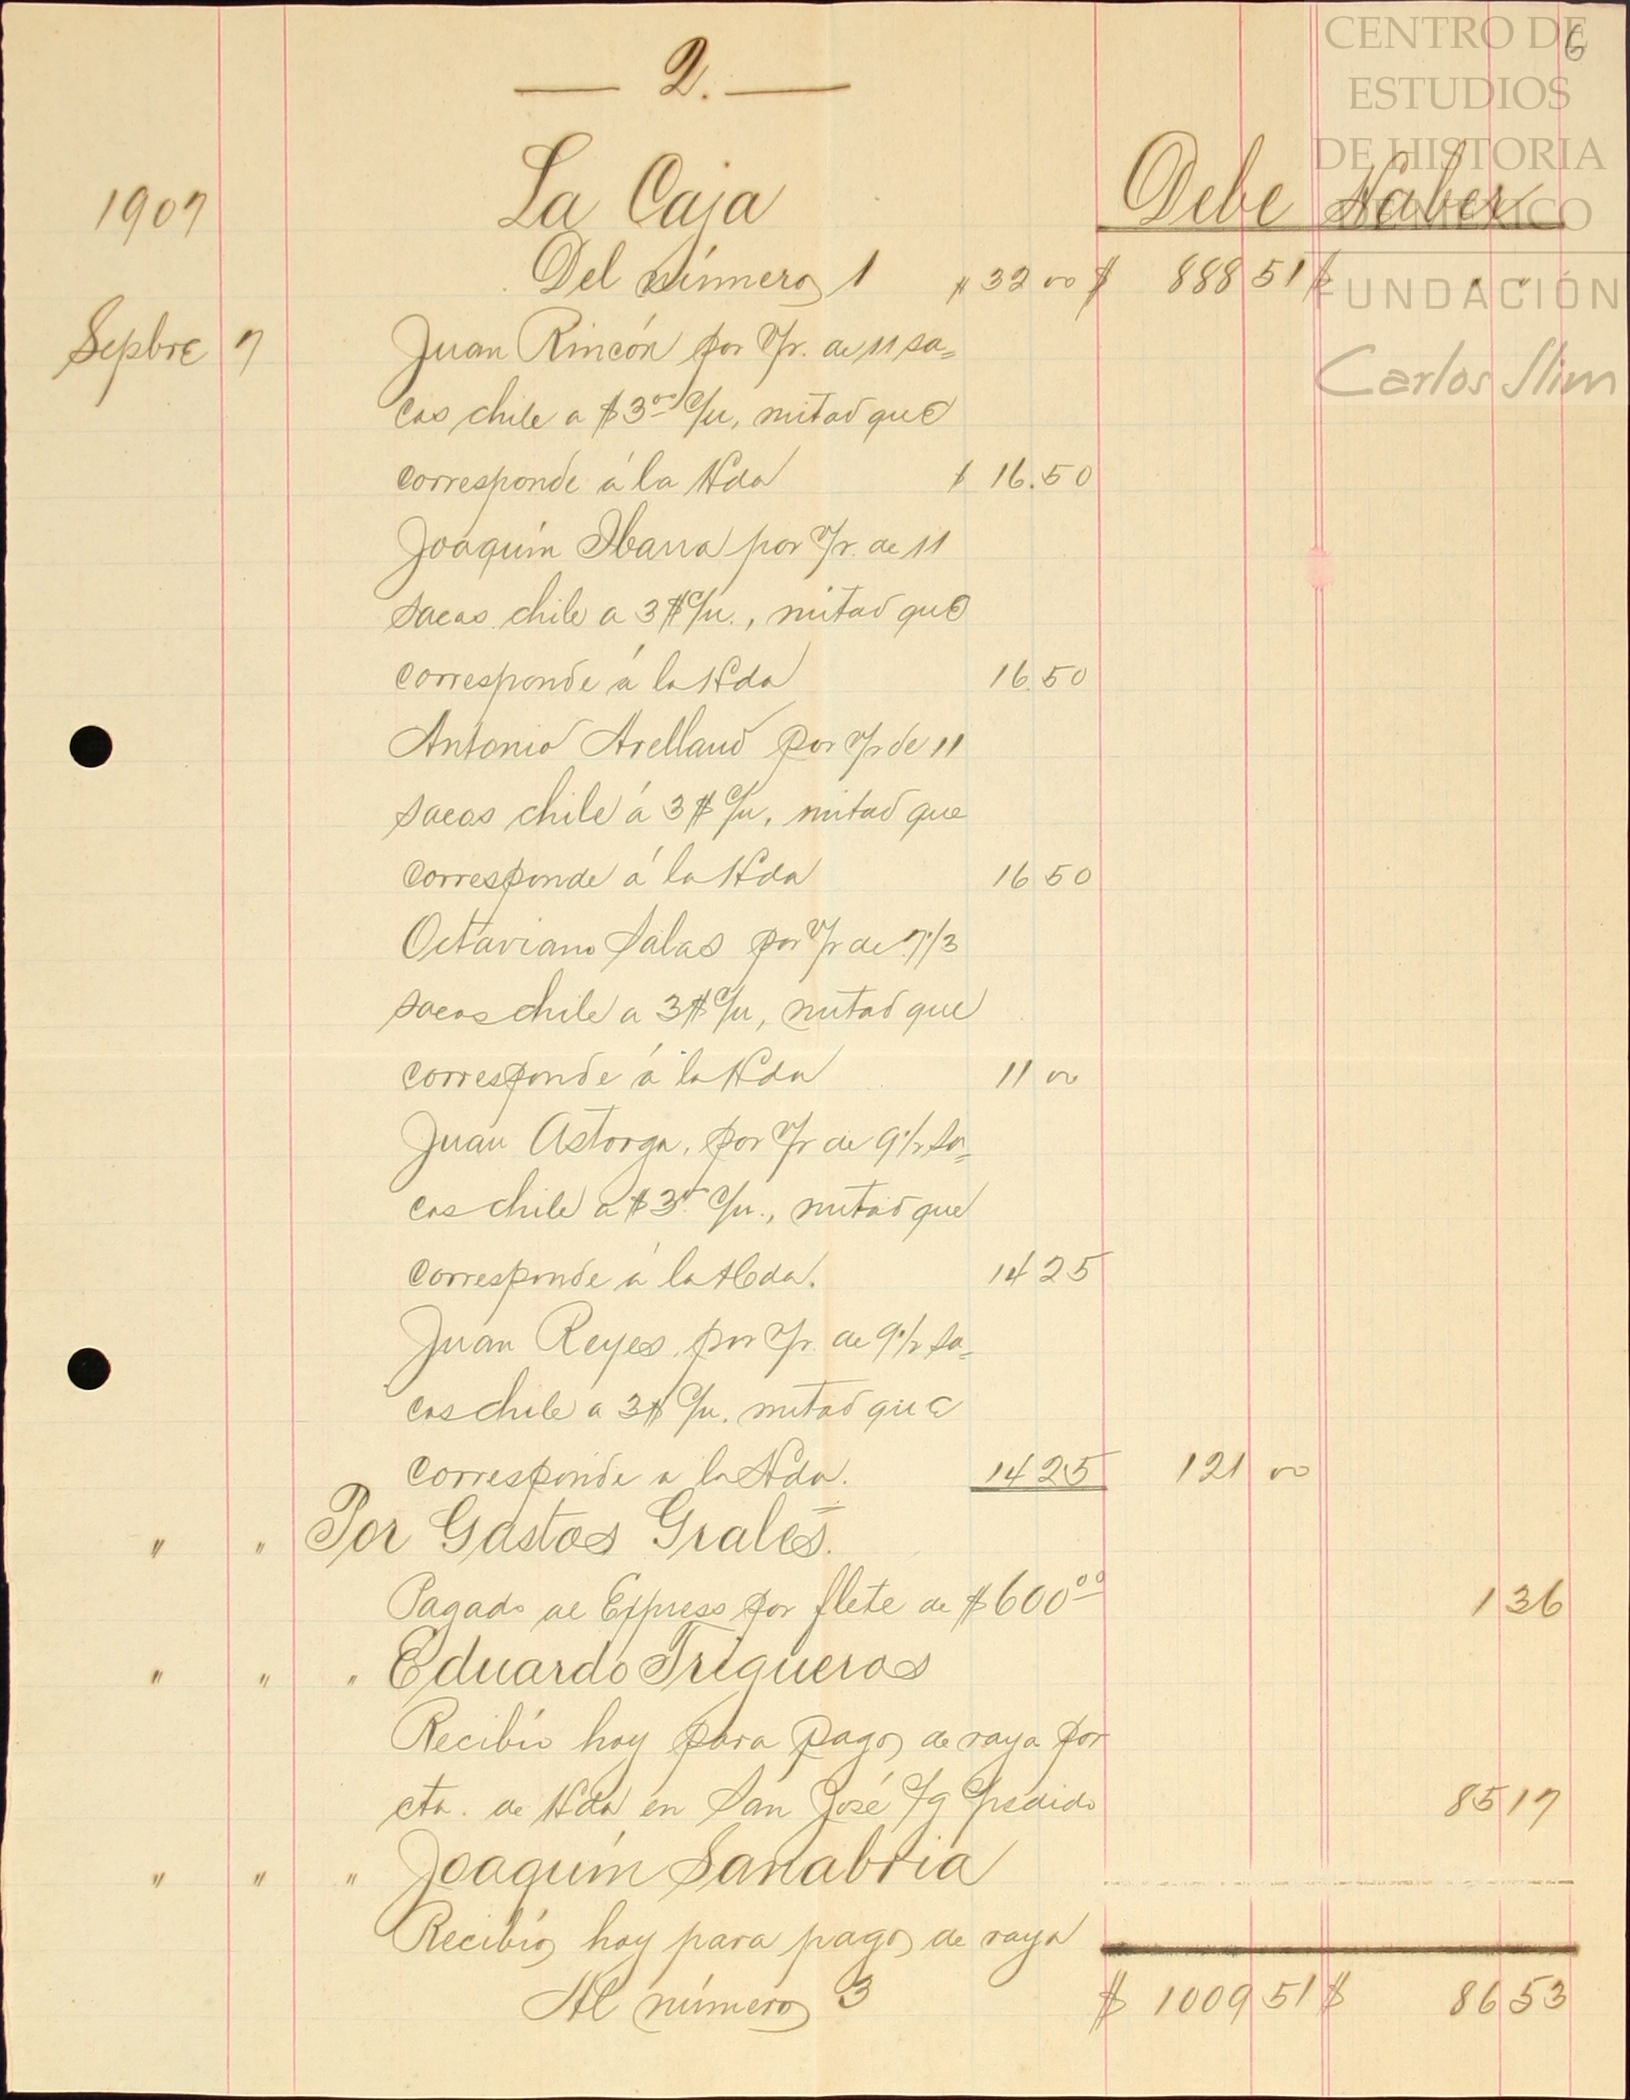 6
CENTRO DE
ESTUDIOS
DE HISTORIA
DE MÉXICO
FUNDACIÓN
Carlos Slim
— 2. —
1907 La Caja Debe Haber
Del número 1 $ 32 00 $ 888 51 $ " "
Sepbre 7 Juan Rincón por v/r. de 11 sa=
cas chile a $3.00 c/u, mitad que
corresponde á la Hda $ 16.50
Joaquín Ibarra por v/r. de 11
sacas chile a 3$ c/u., mitad que
corresponde á la Hda 16.50
Antonio Arellano por v/r de 11
sacas chile á 3$ c/u, mitad que
corresponde á la Hda 16 50
Octaviano Salas por v/r de 7 1/3
sacas chile a 3$ c/u, mitad que
corresponde á la Hda 11 00
Juan Astorga, por v/r de 9 1/2 sa=
cas chile a $3.00 c/u., mitad que
corresponde á la Hda. 14 25
Juan Reyes, por v/r. de 9 1/2 sa=
cas chile a 3$ c/u. mitad que
corresponde a la Hda. 14 25 121 00
" " Por Gastos Grales.
Pagado al Express por flete de $600.00 1 36
" " " Eduardo Trigueros
Recibió hoy para pago de raya por
cta. de Hda en San José 85 17
" " " Joaquím Sanabria
Recibió hoy para pago de raya
Al número 3 $ 1009 51 $ 86 53